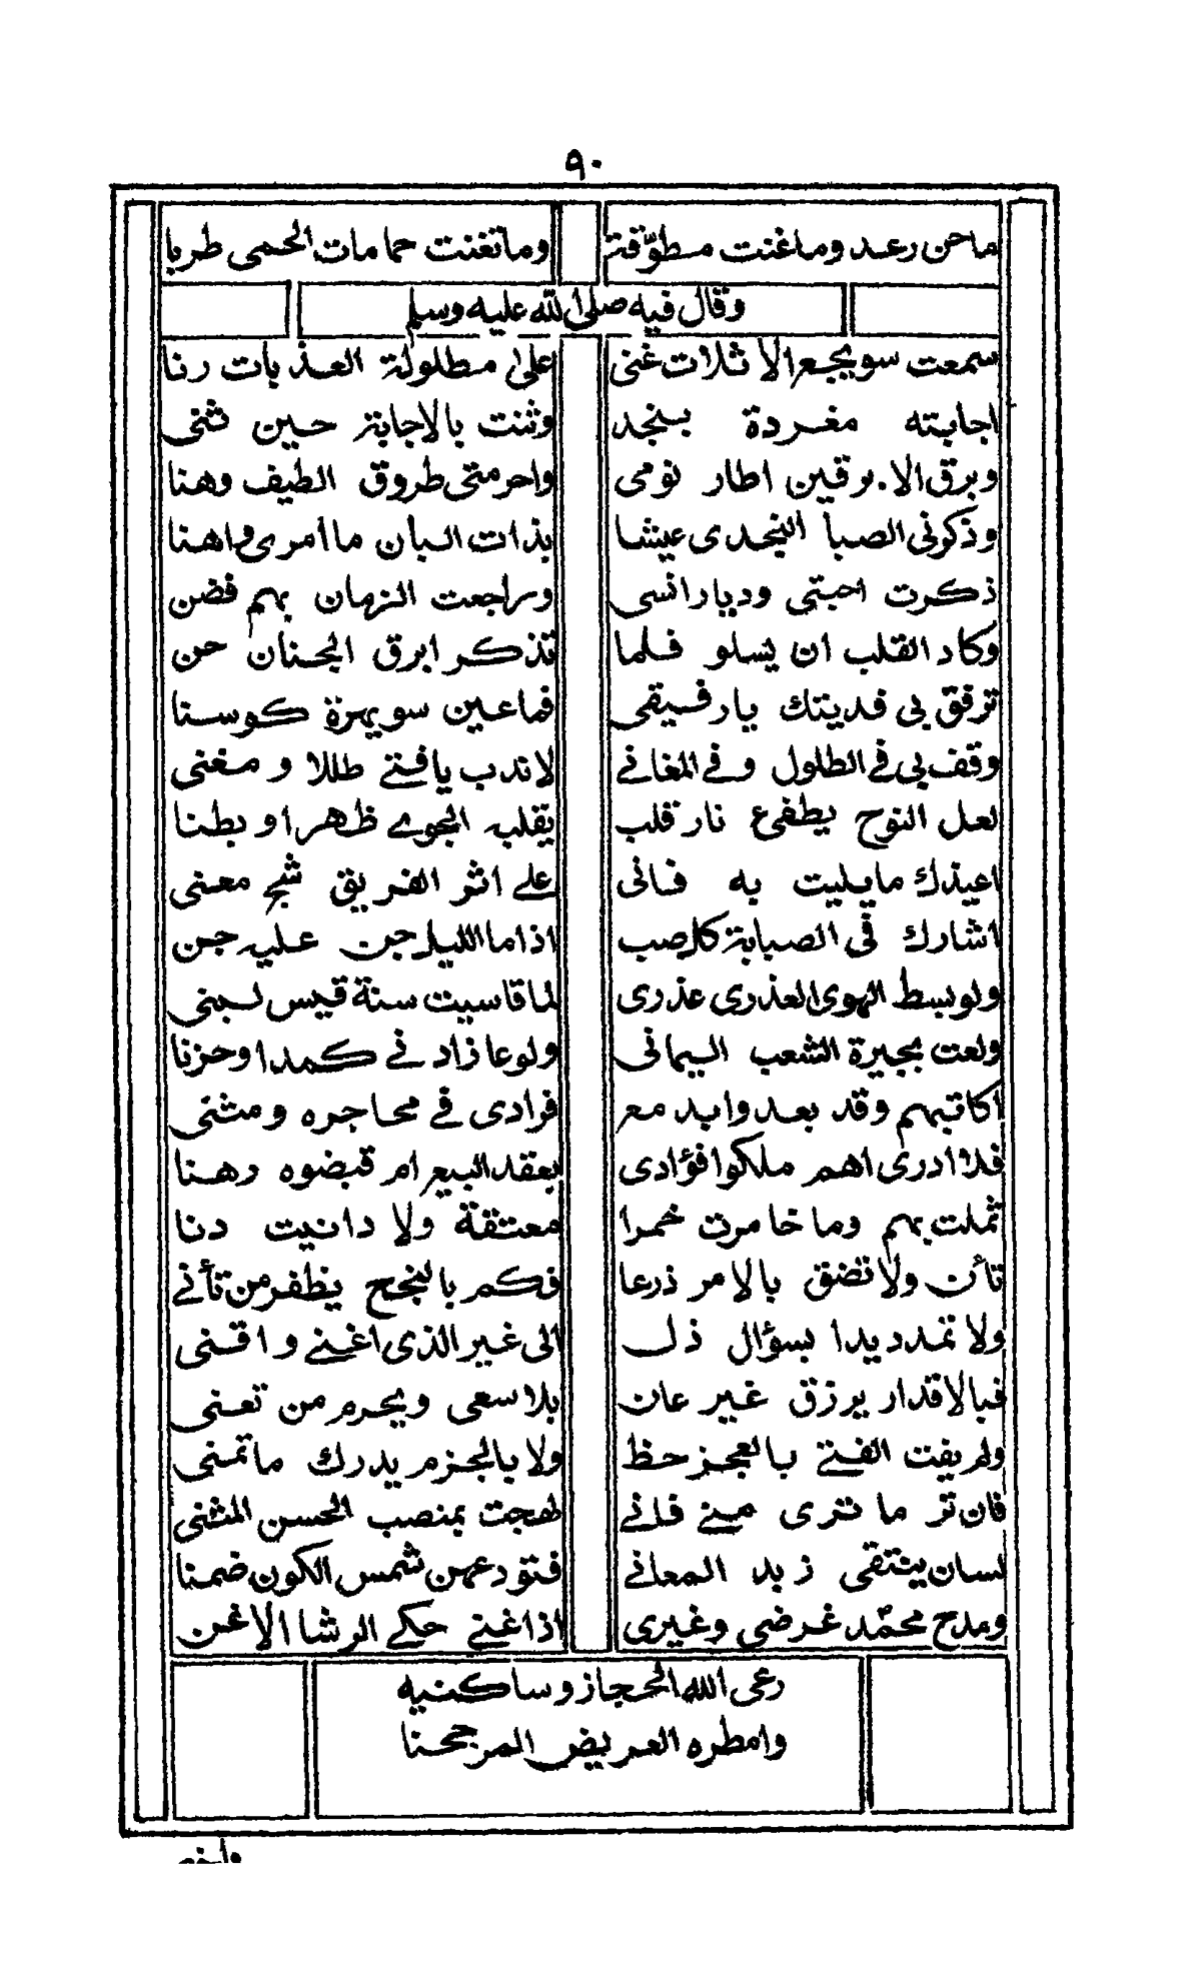 ٩٠
ماحن رعد وماغنت مطوّقة وماتغنت حمامات الحمى طربا
وقال فيه صلى الله عليه وسلم
سمعت سويجع الاثلات غنى على مطلولة العذبات رنا
اجابته مغردة بنجد وثنت بالاجابة حين ثنى
وبرق الابرقين اطار نومى واحرمنى طروق الطيف وهنا
وذكرنى الصبا النجدى عيشا بذات البان ماامرى واهنا
ذكرت احبتى وديار انسى وراجعت الزمان بهم فضن
وكاد القلب ان يسلو فلما تذكر ابرق الحنان حن
ترفق بى فديتك يارفيقى فماعين سويهرة كوسنا
وقف بى فى الطلول وفى المغانى لاندب يافتى طللا ومغنى
لعل النوح يطفئ نار قلب يقلبه الجوى ظهرا وبطنا
اعيذك مابليت به فانى على اثر الفريق شج معنى
اشارك فى الصبابة كل صب اذاماالليل جن عليه جن
ولوبسط الهوى العذرى عذرى لماقاسيت سنة قيس لبنى
ولعت بجيرة الشعب اليمانى ولوعا زاد نى كمدا وحزنا
اكاتبهم وقد بعدوا بدمع فرادى فى محاجره ومثنى
فلا ادرى اهم ملكوا فؤادى بعقد البيع ام قبضوه رهنا
ثملت بهم وما خامرت خمرا معتقة ولا دانيت دنا
تأن ولاتضق بالامر ذرعا فكم بالنجح يظفر من تأنى
ولا تمدد يدا بسؤال ذل الى غير الذى اغنى واقنى
فبالاقدار يرزق غير عان بلا سعى ويحرم من تعنى
ولم يفت الفتى بالعجز حظ ولا بالحزم يدرك ماتمنى
فان تر ما ترى منى فانى لهجت بمنصب الحسن المثنى
لسان ينتقى زبد المعانى فتودعهن شمس الكون ضمنا
ومدح محمد غرضى وغيرى اذاغنى حكى الرشا الاغن
رعى الله الحجاز وساكنيه
وامطره العريض المرجحنا